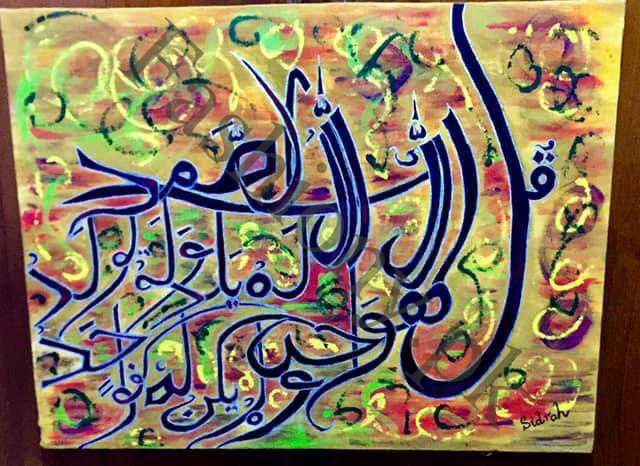 قل هو الله احد
الله الصمد
لم يلد ولم يولد
ولم يكن له كفوًا احد
Sidrah